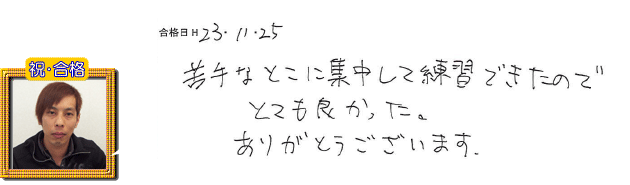 合格日 H 23.11.25
祝・合格
苦手なとこに集中して練習できたので
とても良かった。
ありがとうございます.